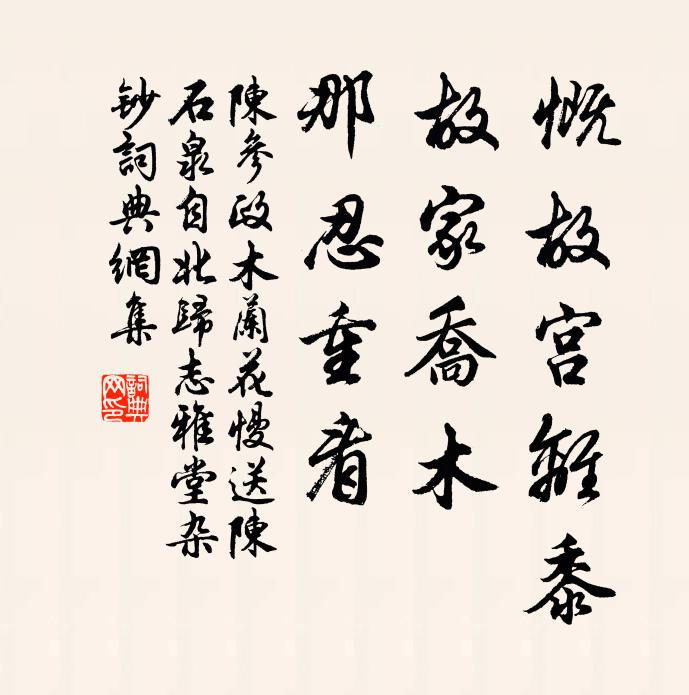 慨故宫離黍
故家喬木
那忍重看
陳參政木蘭花慢送陳
石泉自北歸志雅堂杂
鈔詞典網集
詞典网印